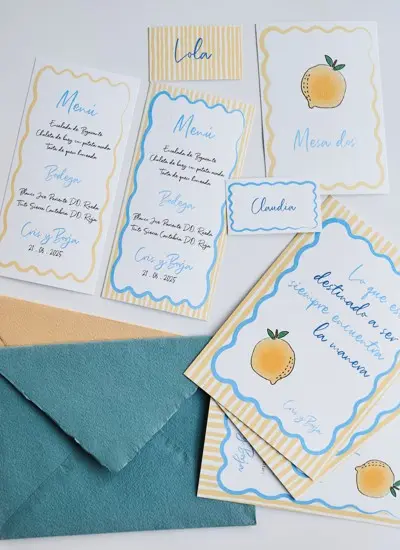 Lola
Menú
Ensalada de Bogavante
Chuleta de buey con patata asada
Tarta de queso horneada
Bodega
Blanco José Pariente D.O. Rueda
Tinto Sierra Cantabria D.O. Rioja
Cris y Borja
21 · 06 · 2025
Menú
Ensalada de Bogavante
Chuleta de buey con patata asada
Tarta de queso horneada
Bodega
Blanco José Pariente D.O. Rueda
Tinto Sierra Cantabria D.O. Rioja
Cris y Borja
21 · 06 · 2025
Mesa dos
Claudia
Lo que es
destinado a ser
siempre encuentra
la manera
Cris y Borja